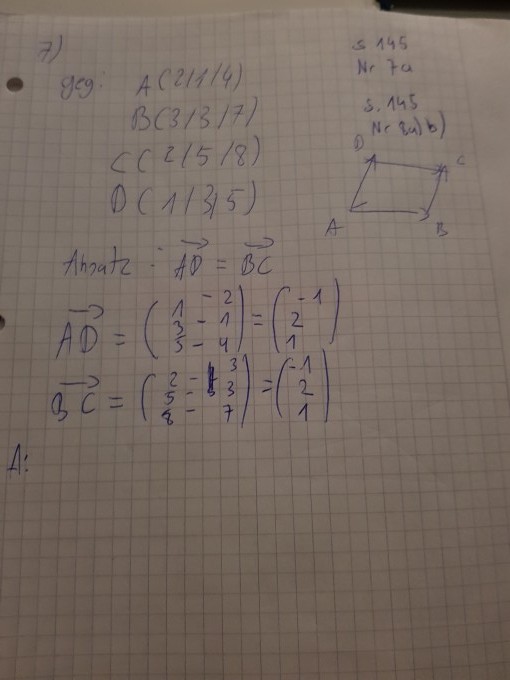 7)
geg: A(2/1/4)
B(3/3/7)
C(2/5/8)
D(1/3/5)
s 145
Nr 7a
s. 145
Nr 8a)b)
D C
A B
Ansatz : AD = BC
AD = ( 1 - 2 ) = ( -1 )
3 - 1 2
5 - 4 1
BC = ( 2 - 3 ) = ( -1 )
5 - 3 2
8 - 7 1
A: